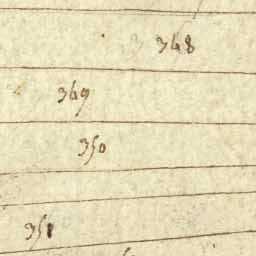 348
349
350
351